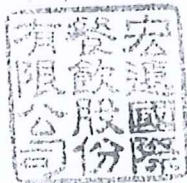 宏國際
餐飲股份
有限公司